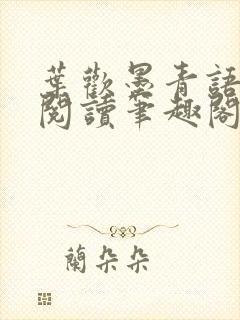 葉歡墨青語
閱讀筆趣閣
蘭朵朵